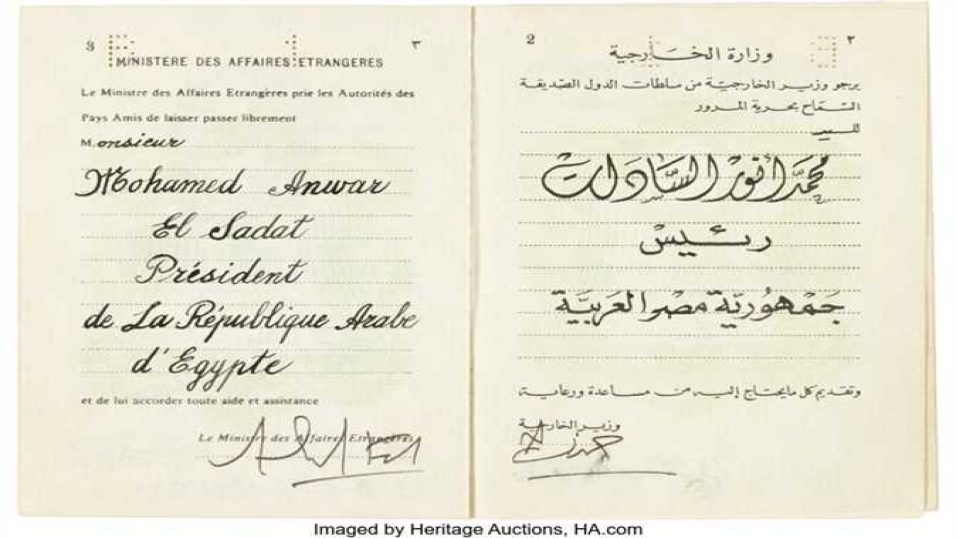 3
MINISTERE DES AFFAIRES ETRANGERES
Le Ministre des Affaires Etrangères prie les Autorités des
Pays Amis de laisser passer librement
Monsieur
Mohamed Anwar
El Sadat
Président
de La République Arabe
d'Egypte
et de lui accorder toute aide et assistance
Le Ministre des Affaires Etrangères
٣
2
٢
وزارة الخارجية
يرجو وزير الخارجية من سلطات الدول الصديقة
السماح بحرية المرور
للسيد
محمد أنور السادات
رئيس
جمهورية مصر العربية
وتقديم كل ما يحتاج إليه من مساعدة ورعاية،
وزير الخارجية
Imaged by Heritage Auctions, HA.com